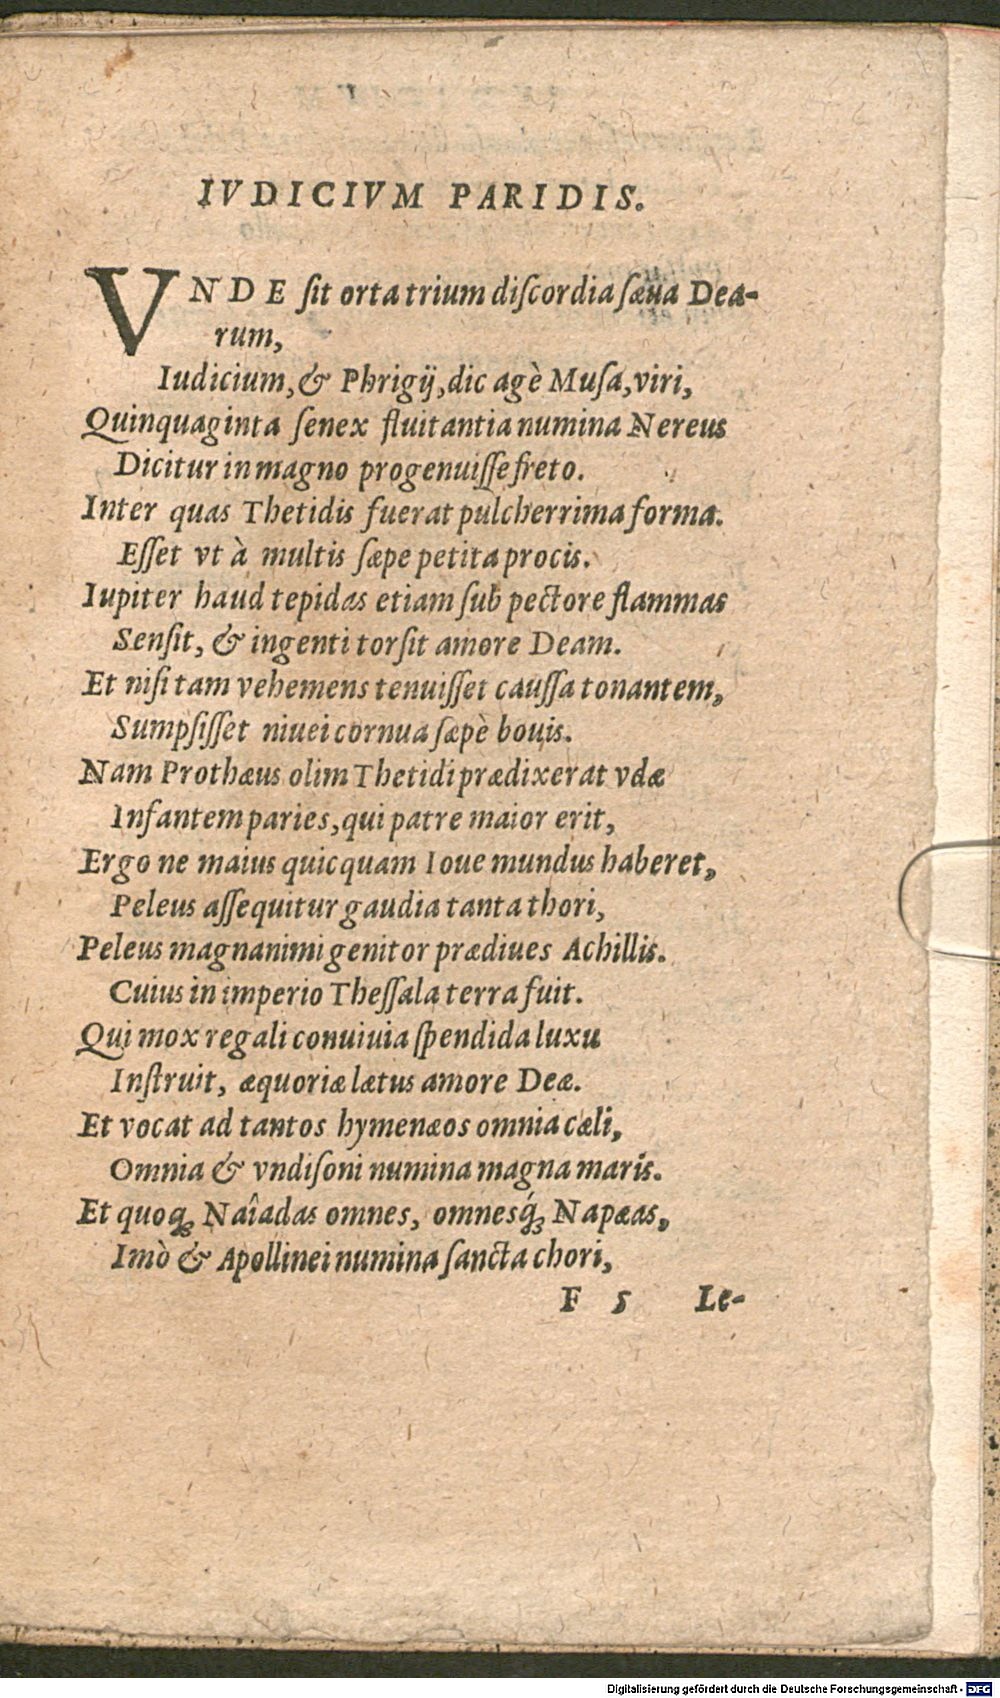 IVDICIVM PARIDIS.
VNDE ſit orta trium diſcordia ſæua Dea-
rum,
Iudicium, & Phrigij, dic agè Muſa, viri,
Quinquaginta ſenex fluitantia numina Nereus
Dicitur in magno progenuiſſe freto.
Inter quas Thetidis fuerat pulcherrima forma.
Eſſet vt à multis ſæpe petita procis.
Iupiter haud tepidas etiam ſub pectore flammas
Senſit, & ingenti torſit amore Deam.
Et niſi tam vehemens tenuiſſet cauſſa tonantem,
Sumpſiſſet niuei cornua ſæpè bouis.
Nam Prothæus olim Thetidi prædixerat vdæ
Infantem paries, qui patre maior erit,
Ergo ne maius quicquam Ioue mundus haberet,
Peleus aſſequitur gaudia tanta thori,
Peleus magnanimi genitor prædiues Achillis.
Cuius in imperio Theſſala terra fuit.
Qui mox regali conuiuia ſpendida luxu
Inſtruit, æquoriæ lætus amore Deæ.
Et vocat ad tantos hymenæos omnia cæli,
Omnia & vndiſoni numina magna maris.
Et quoq; Naîadas omnes, omnesq́; Napæas,
Imò & Apollinei numina ſancta chori,
F 5 Le-
Digitalisierung gefördert durch die Deutsche Forschungsgemeinschaft - DFG